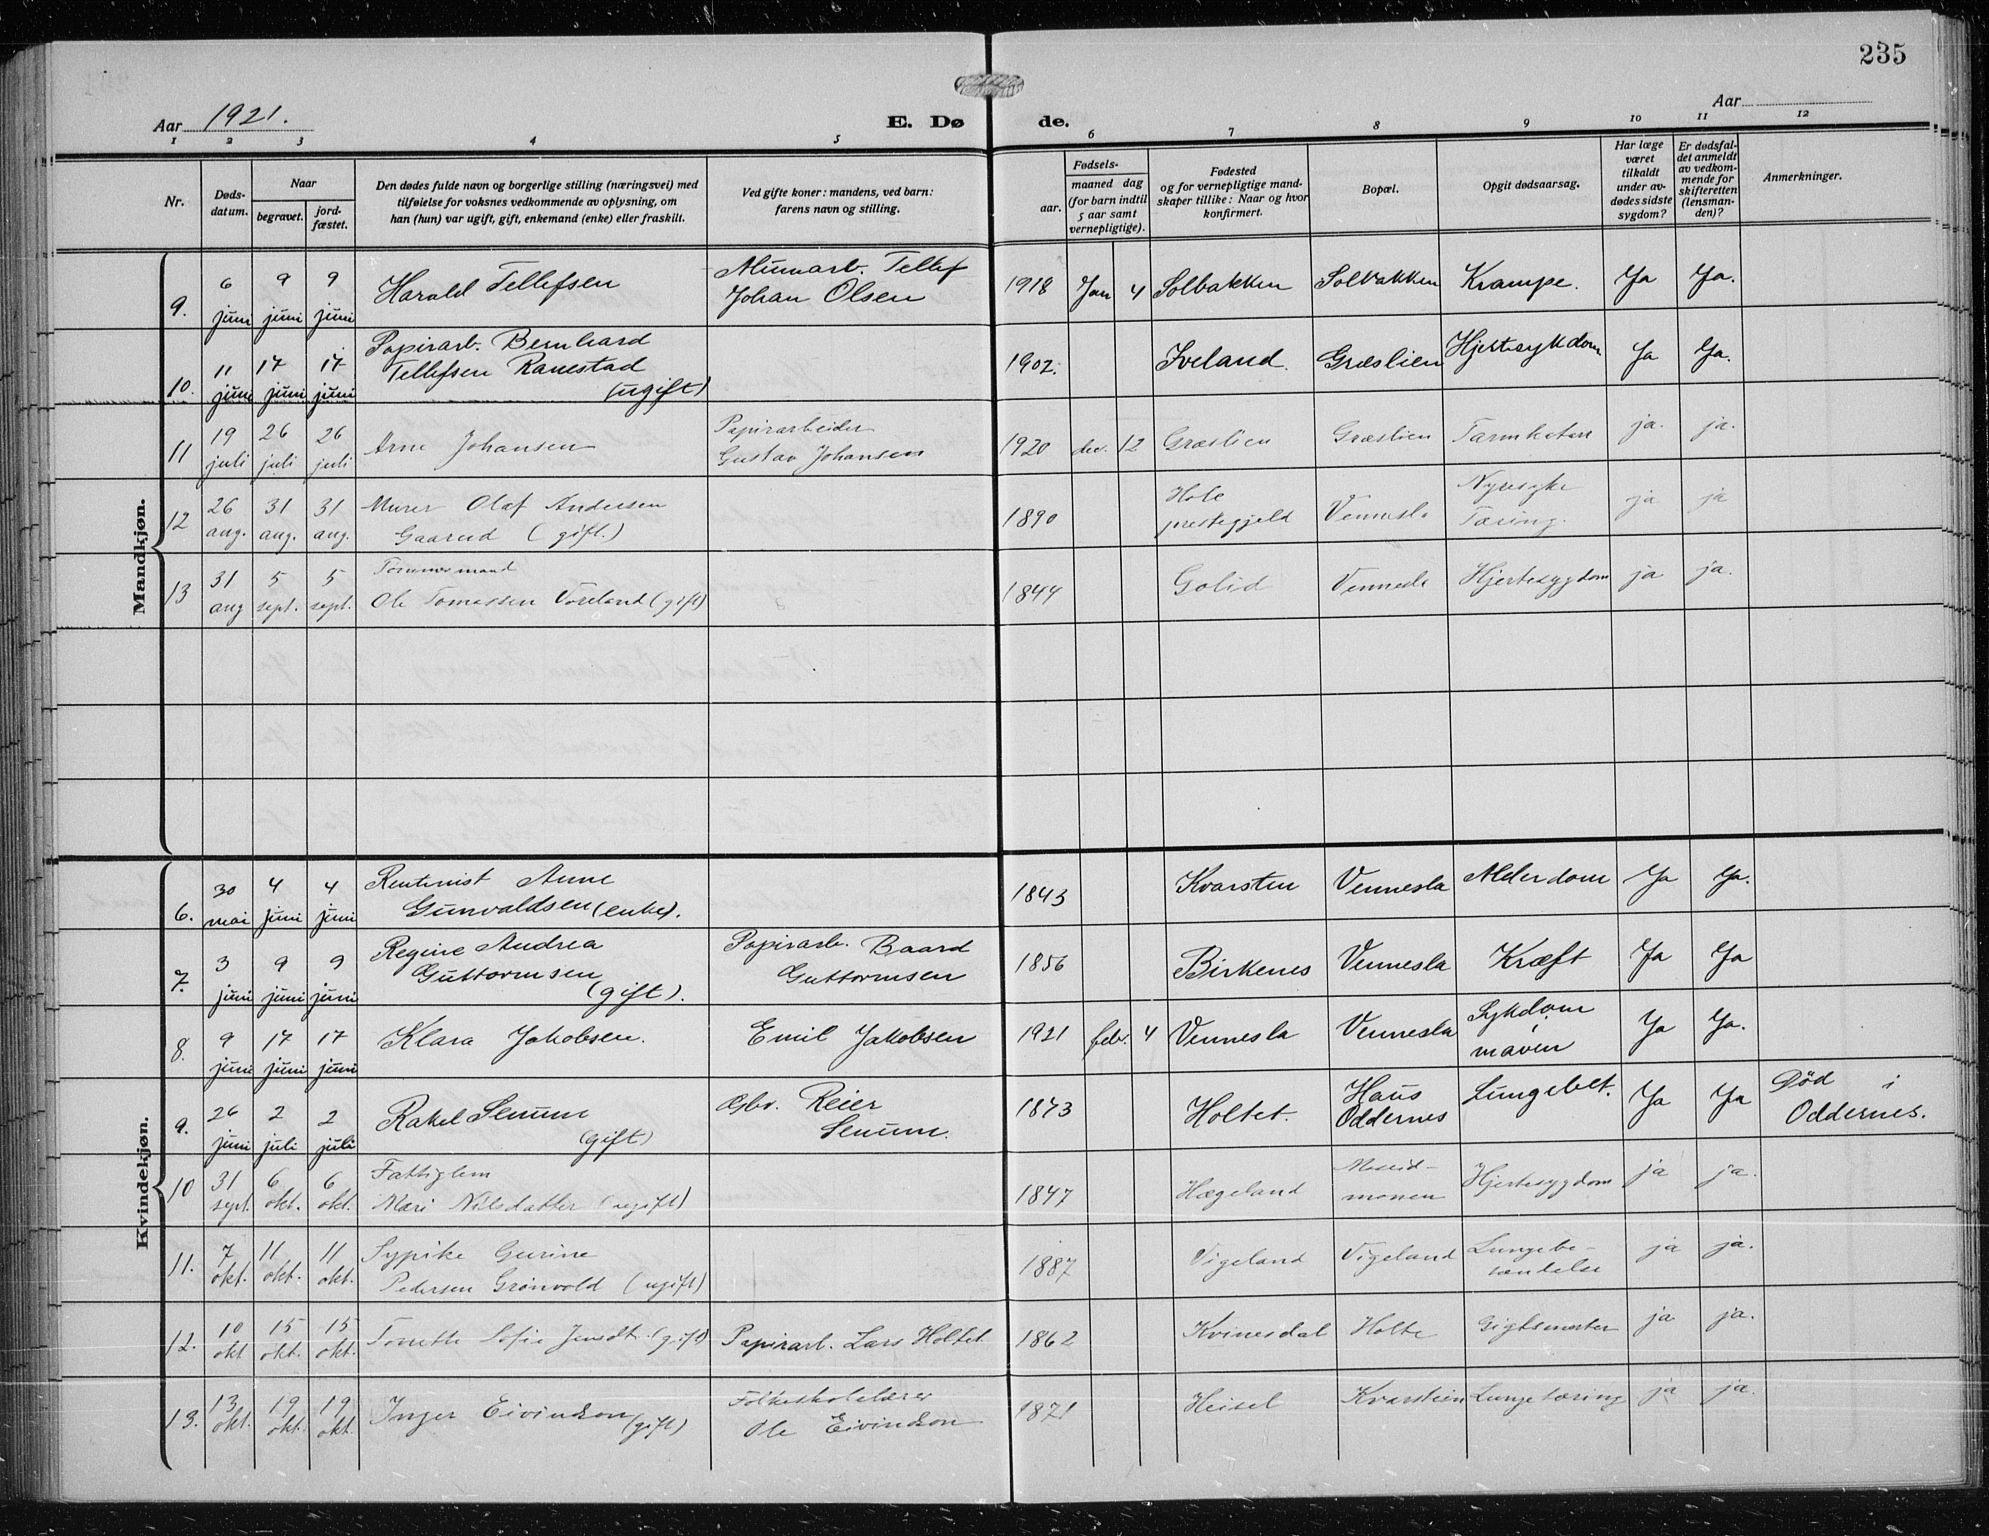 235
Aar 1921.
E. Dø de.
Aar
1 2 3 4 5 6 7 8 9 10 11 12
Nr.
Døds-
datum.
Naar
begravet.
jord-
fæstet.
Den dødes fulde navn og borgerlige stilling (næringsvei) med
tilføielse for voksnes vedkommende av oplysning, om
han (hun) var ugift, gift, enkemand (enke) eller fraskilt.
Ved gifte koner: mandens, ved barn:
farens navn og stilling.
Fødsels-
aar.
maaned dag
(for barn indtil
5 aar samt
vernepligtige).
Fødested
og for vernepligtige mand-
skaper tillike: Naar og hvor
konfirmert.
Bopæl.
Opgit dødsaarsag.
Har læge
været
tilkaldt
under av-
dødes sidste
sygdom?
Er dødsfal-
det anmeldt
av vedkom-
mende for
skifteretten
(lensman-
den)?
Anmerkninger.
Mandkjøn.
9. 6 juni 9 juni 9 juni Harald Tellefsen Tellef
Johan Olsen 1918 Jan 4 Solbakken Solbakken Krampe. Ja Ja.
10. 11 juni 17 juni 17 juni Papirarb. Bernhard
Tellefsen Ranestad
(ugift) 1902. Iveland. Græslien Hjertesykdom Ja Ja.
11 19 juli 26 juli 26 juli Arne Johansen Papirarbeider
Gustav Johansen 1920 dec. 12 Græslien Græslien Tarmkatarr ja. ja.
12 26 aug. 31 aug. 31 aug. Murer Olaf Andersen
Gaarud (gift.) 1890 Hole
prestegjeld Vennesla Nyresyke
Tæring. ja ja
13 31 aug 5 sept. 5 sept. Tømmermand
Ole Tomassen Voreland (gift) 1844 Golid Vennesla Hjertesygdom ja ja.
Kvindekjøn.
6. 30 mai 4 juni 4 juni Rentenist Anne
Gunvaldsen (enke). 1843 Kvarsten Vennesla Alderdom Ja Ja.
7. 3 juni 9 juni 9 juni Regine Andrea
Guttormsen
(gift). Papirarb. Baard
Guttormsen 1856 Birkenes Vennesla Kræft Ja Ja
8. 9 juni 17 juni 17 juni Klara Jakobsen. Emil Jakobsen 1921 febr. 4 Vennesla Vennesla Sykdom
i
maven Ja Ja.
9. 26 juni 2 juli 2 juli Rakel Senum
(gift) Gbr. Reier
Senum. 1873 Holtet. Haus
Oddernes Lungebet. Ja Ja Død i
Oddernes.
10 31 sept. 6 okt. 6 okt. Fattiglem
Mari Nilsdatter (ugift) 1847 Hægeland Moseid-
monen Hjertesygdom ja ja.
11. 7 okt. 11 okt. 11 okt. Sypike Gurine
Pedersen Grønvold (ugift) 1887 Vigeland Vigeland Lungebe-
tændelse ja ja.
12. 10 okt 15 okt. 15 okt. Tonette Sofie Jensdt. (gift) Papirarb. Lars Holtet. 1862 Kvinesdal Holte Gigtsmerter ja ja.
13. 13 okt. 19 okt. 19 okt. Inger Eivindson (gift) Folkeskolelærer
Ole Eivindson 1871 Heisel Kvarstein Lungetæring ja ja.